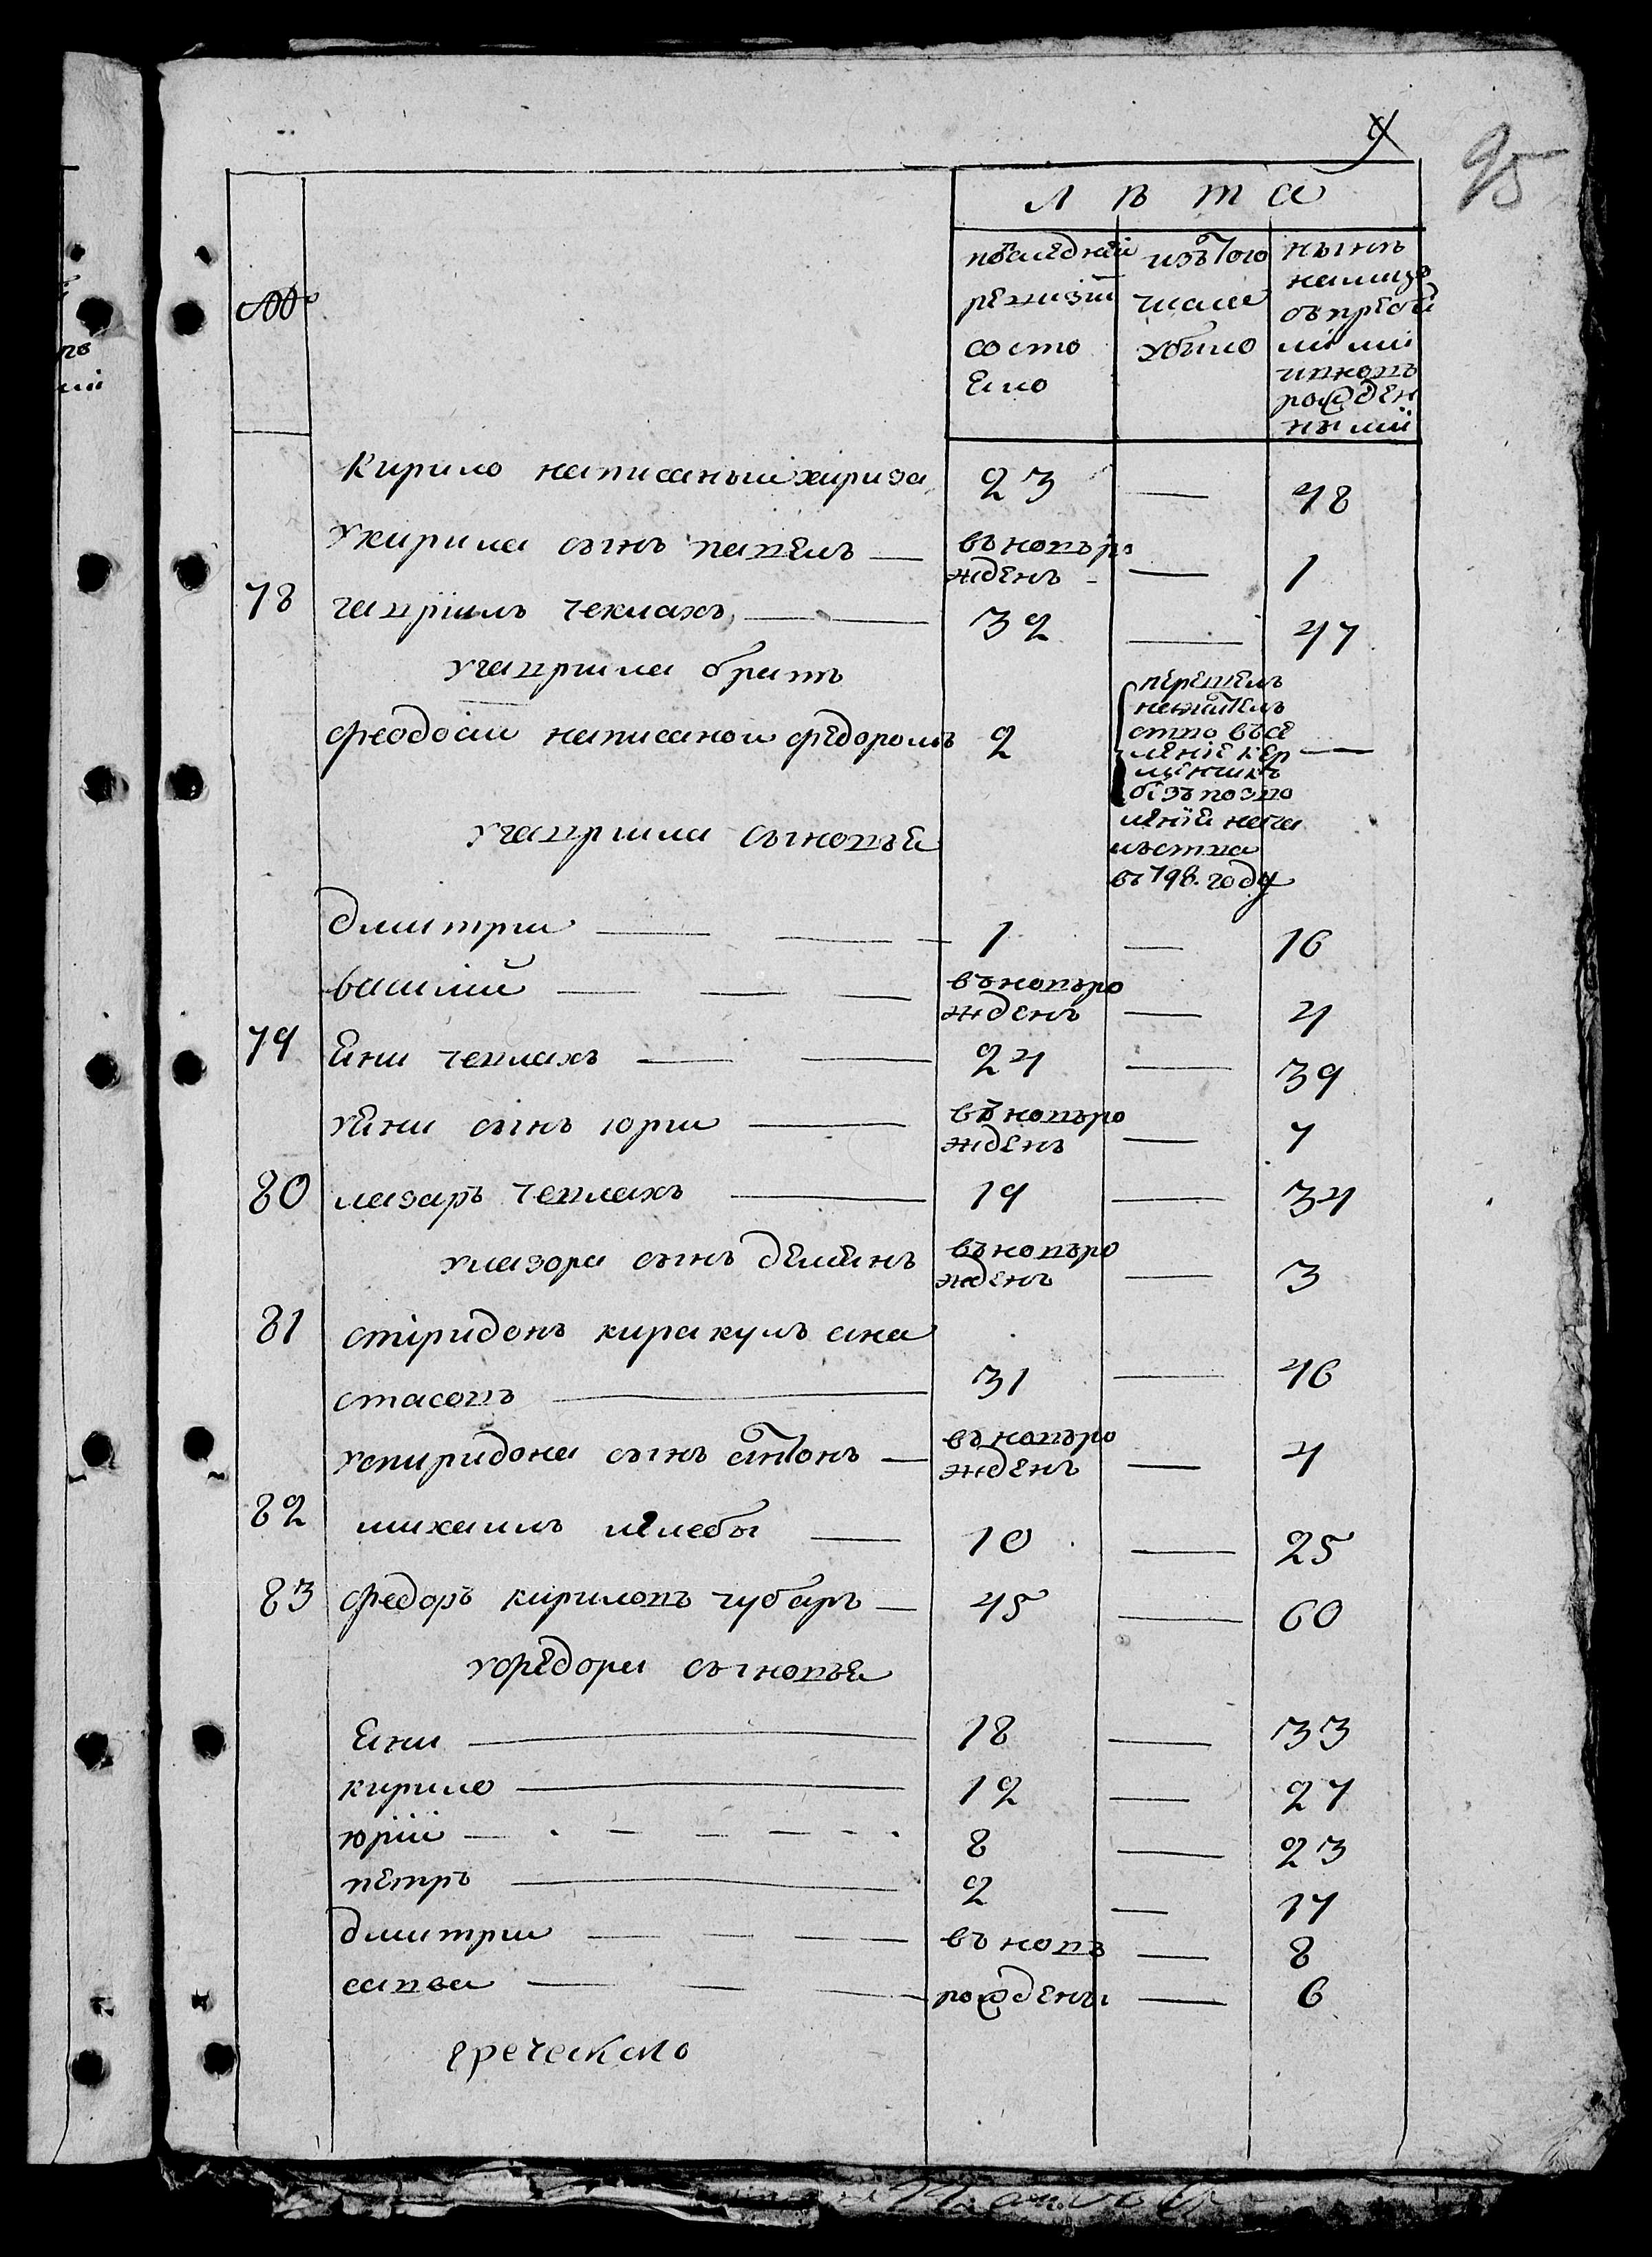 95
лѣта
№
последней ревизии состояло
изътого числа убыло
нынѣ налицо съприбылыми ивновь рожденными
Кирило написаный хариза 23 — 48
укирила сынъ павелъ — вьновърожденъ — 1
78 гаврiилъ чеклахъ — 32 — 47
угаврила братъ
феодосий написаной федоромъ 2 перешелъ нажителство въселение керменчикъ безъпозволения началъства въ798. году —
угаврила сыновья
дмитри — 1 — 16
василий — вьновъро жденъ — 4
79 яни чеплахъ — 24 — 39
уяни сынъ юрии — вьновъро жденъ — 7
80 лазаръ чеплахъ — 19 — 34
улазора сынъ демянъ вьновъро жденъ — 3
81 спиридонъ киракулъ ана
стасовъ — 31 — 46
успиридона сынъ антонъ — вьновъро жденъ — 4
82 михаилъ челебы — 10 — 25
83 федоръ кириловъ чубаръ — 45 — 60
уфедора сыновья
яни — 18 — 33
кирило — 12 — 27
юрiй — 8 — 23
петръ — 2 — 17
дмитри — вьновъ — 8
савва — рождены — 6
греческаго